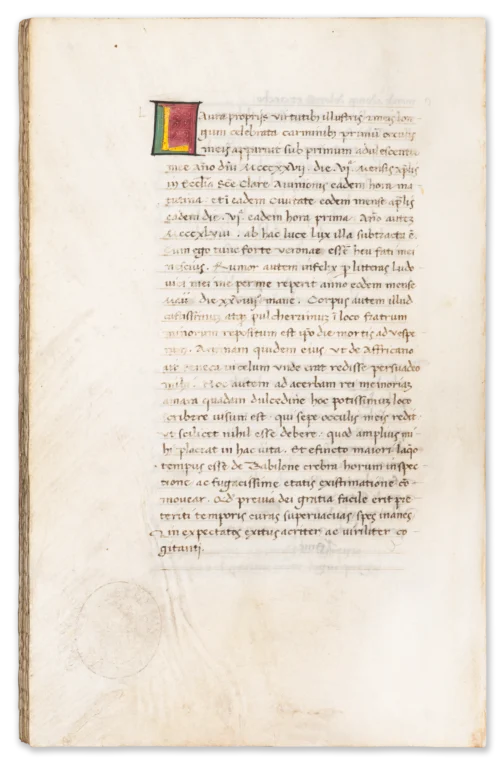 Laura propriis virtutibꝰ illustris ⁊ meis lon
gum celebrata carminibꝰ primū occulis
meis apparuit sub primum adulescentie
mee Año dñi Mcccxxvij. die. vjº. mensis ap̄lis
in Ecclīa Sce Clare Avinionis eadem hora ma
tutina. et ī eadem Civitate eodem mense ap̄lis
eadem die. vjº. eadem hora prima. Año autez
Mcccxlviij. ab hac luce lux illa subtracta ē.
Cum ego tunc forte veronae essē heu fati mei
nescius. Rumor autem infelix ꝑ litteras Ludo
vici mei me parme reperit anno eodem mense
die mane. Corpus autem illud
castissimuz atqꝫ pulcherrimuz ī loco fratrum
minorum repositum est ip̄o die mortis ad vespe
Animam quidem eius ut de Affricano
ait Seneca in celum unde erat redisse persuadeo
mihi. Hoc autem ad acerbam rei memoriaz
amara quadam dulcedine hoc potissimuz loco
scribere visum est. qui sepe occulis meis redit
ut scilicet nihil esse debere. quod amplius mi
hi placeat in hac vita. Et efracto maiori laqo
tempus esse de Babilone crebra horum inspec
tione ac fugacissime etatis existimatione cō
movear. Qd previa dei gratia facile erit pre
teriti temporis curas supervacuas spes inanes
⁊ inexpectatos exitus acriter ac viriliter co
gitanti.